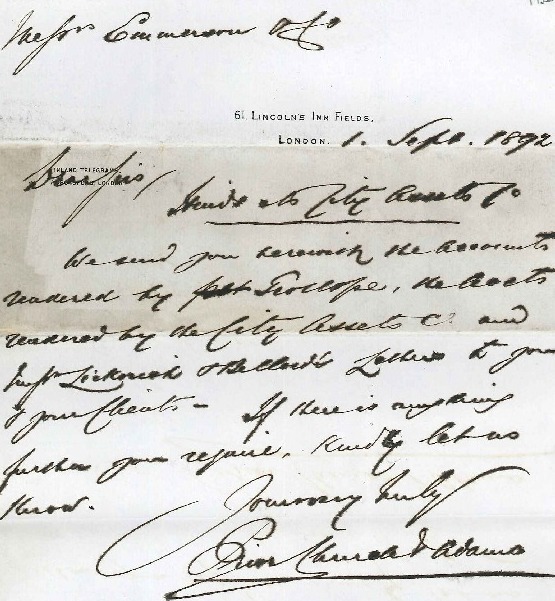 Messrs Emmerson & Co
61 LINCOLN'S INN FIELDS,
LONDON. 1. Sept. 1892
INLAND TELEGRAMS,
LONDON
Dear Sirs,
City Assets Co
We send you herewith the Accounts
rendered by Trollope, the Accts
rendered by the City Assets Co. and
Messrs Letters to you
& your Clients - If there is anything
further you require, kindly let us
know.
Yours very truly
Church & Adams